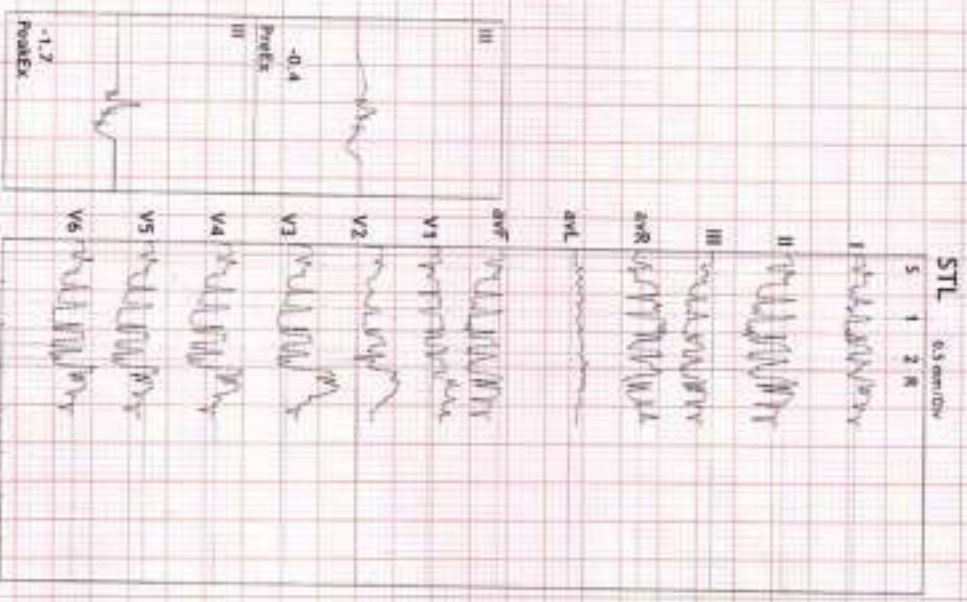 STL 0.5 mm/Div
S 1 2 R
I
II
III
avR
avL
avF
V1
V2
V3
V4
V5
V6
III
-0.4
PreEx
III
-1.7
PeakEx